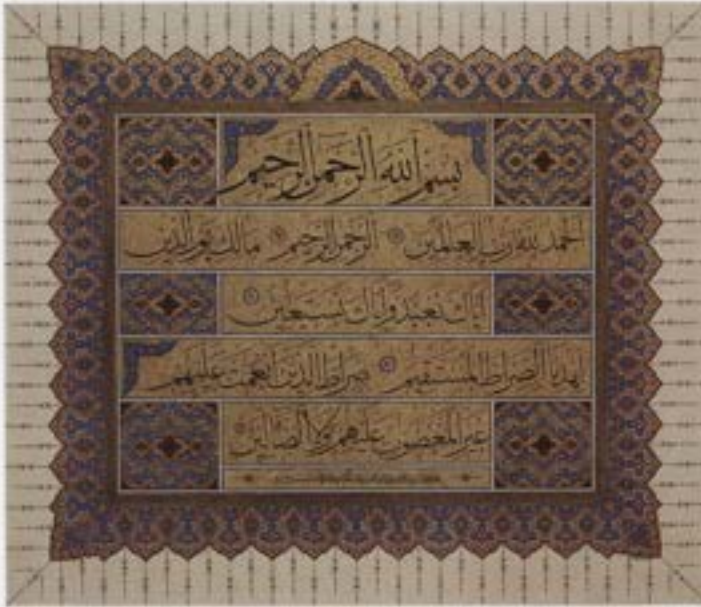 بسم الله الرحمن الرحيم
الحمد لله رب العالمين الرحمن الرحيم مالك يوم الدين
اياك نعبد واياك نستعين
اهدنا الصراط المستقيم صراط الذين انعمت عليهم
غير المغضوب عليهم ولا الضالين